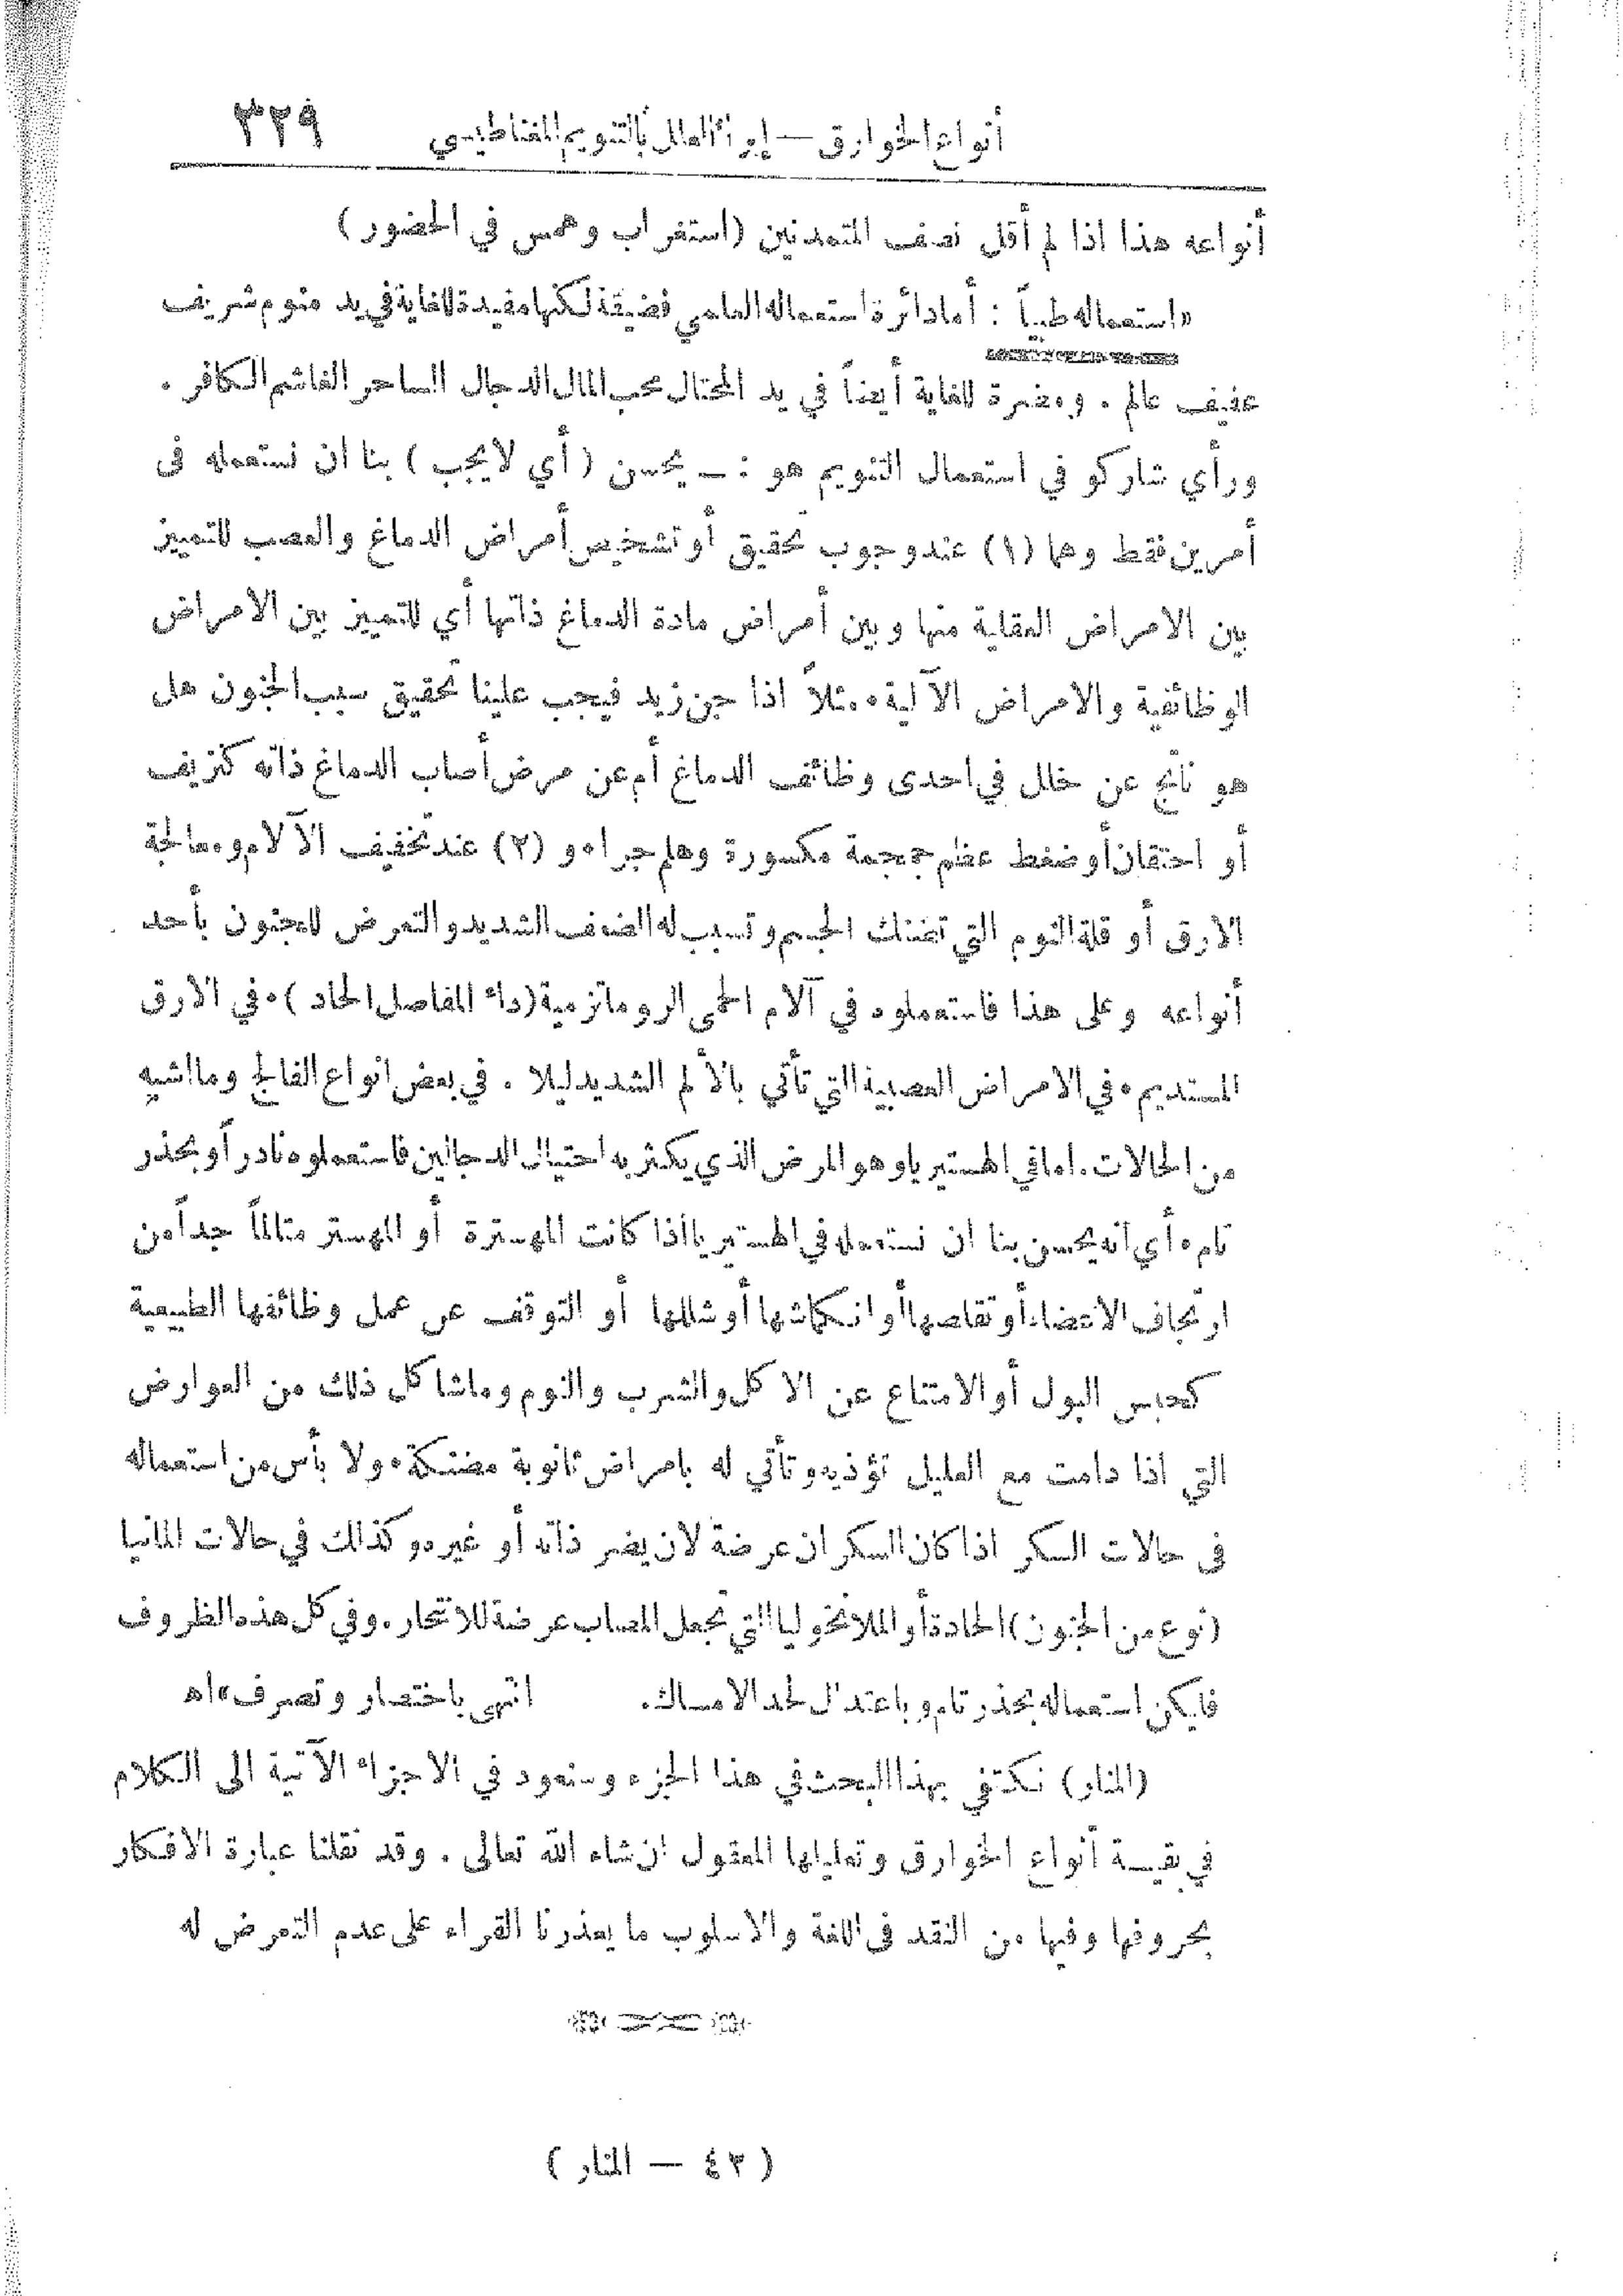 أنواع الخوارق — إبراء العلل بالتنويم المغناطيسي ٣٢٩
أنواعه هذا اذا لم أقل نصف المتمدنين (استغراب وهمس في الحضور)
«استعماله طبياً : أما دائرة استعماله العلمي فضيقة لكنها مفيدة للغاية في يد منوم شريف
عفيف عالم . ومضرة للغاية أيضاً في يد المحتال محب المال الدجال الساحر الغاشم الكافر .
ورأي شاركو في استعمال التنويم هو : — يحسن ( أي لايجب ) بنا ان نستعمله فى
أمرين فقط وهما (١) عند وجوب تحقيق أو تشخيص أمراض الدماغ والعصب للتمييز
بين الامراض العقلية منها وبين أمراض مادة الدماغ ذاتها أي للتمييز بين الامراض
الوظائفية والامراض الآلية . مثلاً اذا جن زيد فيجب علينا تحقيق سبب الجنون هل
هو ناتج عن خلل في احدى وظائف الدماغ أم عن مرض أصاب الدماغ ذاته كنزيف
أو احتقان أو ضغط عظم جمجمة مكسورة وهلم جرا . و (٢) عند تخفيف الآلام ومعالجة
الارق أو قلة النوم التي تضنك الجسم وتسبب له الضعف الشديد والتعرض للجنون بأحد
أنواعه وعلى هذا فاستعملوه في آلام الحمى الروماتزمية (داء المفاصل الحاد ) . في الارق
المستديم . في الامراض العصبية التي تأتي بالألم الشديد ليلا . في بعض انواع الفالج وما اشبه
من الحالات . اما في الهستيريا وهو المرض الذي يكثر به احتيال الدجالين فاستعملوه نادراً وبحذر
تام . أي انه يحسن بنا ان نستعمله في الهستيريا اذا كانت المهسترة أو المهستر متالماً جداً من
ارتجاف الاعضاء أو تقلصها أو انكماشها أو شللها أو التوقف عن عمل وظائفها الطبيعية
كحبس البول أو الامتناع عن الاكل والشرب والنوم وما شاكل ذلك من العوارض
التي اذا دامت مع العليل تؤذيه وتأتي له بامراض ثانوية مضنكة . ولا بأس من استعماله
فى حالات السكر اذا كان السكران عرضة لان يضر ذاته أو غيره . وكذلك في حالات المانيا
(نوع من الجنون) الحادة أو الملانخوليا التي تجعل المصاب عرضة للانتحار . وفي كل هذه الظروف
فليكن استعماله بحذر تام وباعتدال لحد الامساك . انتهى باختصار وتصرف» اه
(المنار) نكتفي بهذا البحث في هذا الجزء وسنعود في الاجزاء الآتية الى الكلام
في بقيسة أنواع الخوارق وتعليلها المعقول ان شاء الله تعالى . وقد نقلنا عبارة الافكار
بحروفها وفيها من النقد فى اللغة والاسلوب ما يعذرنا القراء على عدم التعرض له
( ٤٢ — المنار )